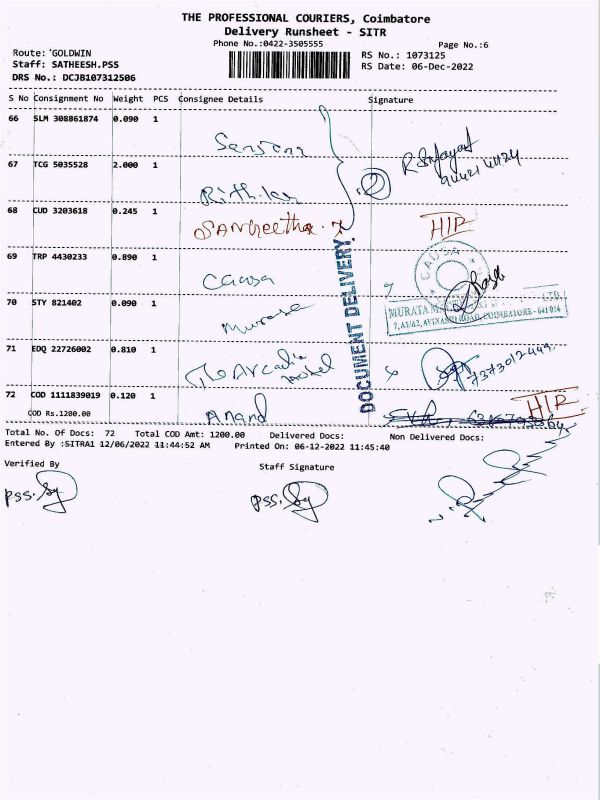 THE PROFESSIONAL COURIERS, Coimbatore
Delivery Runsheet - SITR
Phone No.:0422-3505555
Page No.:6
Route: 'GOLDWIN
Staff: SATHEESH.PSS
DRS No.: DCJB107312506
RS No.: 1073125
RS Date: 06-Dec-2022
S No Consignment No Weight PCS Consignee Details Signature
66 SLM 308861874 0.090 1
67 TCG 5035528 2.000 1
Rithika
68 CUD 3203618 0.245 1
Sangeetha.
HIR
69 TRP 4430233 0.890 1
Causa
CAUSA
70 STY 821402 0.090 1
Murata
MURATA
7,A1/A2, AVINASHI ROAD, COIMBATORE - 641 014
LTD.
DOCUMENT DELIVERY
71 EDQ 22726002 0.810 1
The Arcadia Hotel
7373012449.
72 COD 1111839019 0.120 1
COD Rs.1200.00
Anand
HIR
Total No. Of Docs: 72 Total COD Amt: 1200.00 Delivered Docs: Non Delivered Docs:
Entered By :SITRA1 12/06/2022 11:44:52 AM Printed On: 06-12-2022 11:45:40
Verified By
Staff Signature
pss.
pss.